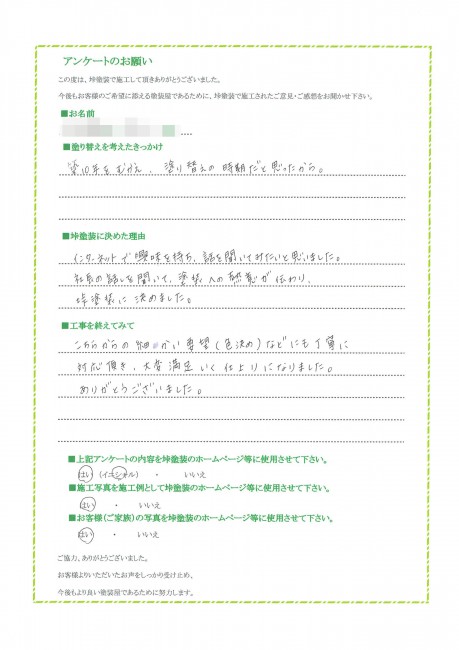 アンケートのお願い
この度は、垰塗装で施工して頂きありがとうございました。
今後もお客様のご希望に添える塗装屋であるために、垰塗装で施工されたご意見・ご感想をお聞かせ下さい。
■お名前
■塗り替えを考えたきっかけ
築10年をむかえ、塗り替えの時期だと思ったから。
■垰塗装に決めた理由
インターネットで興味を持ち、話を聞いてみたいと思いました。
社長の話しを聞いて、塗装への熱意が伝わり、
垰塗装に決めました。
■工事を終えてみて
こちらからの細かい要望(色決め)などにも丁寧に
対応頂き、大変満足いく仕上りになりました。
ありがとうございました。
■上記アンケートの内容を垰塗装のホームページ等に使用させて下さい。
はい (イニシャル) ・ いいえ
■施工写真を施工例として垰塗装のホームページ等に使用させて下さい。
はい ・ いいえ
■お客様(ご家族)の写真を垰塗装のホームページ等に使用させて下さい。
はい ・ いいえ
ご協力、ありがとうございました。
お客様よりいただいたお声をしっかり受け止め、
今後もより良い塗装屋であるために努力します。